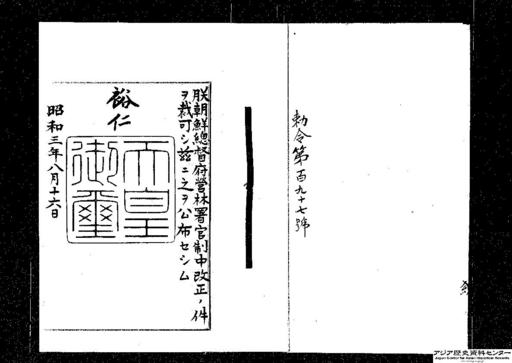 勅令第百九十七號
朕朝鮮總督府營林署官制中改正ノ件
ヲ裁可シ茲ニ之ヲ公布セシム
裕仁
天皇
御璽
昭和三年八月十六日
アジア歴史資料センター
Japan Center for Asian Historical Records